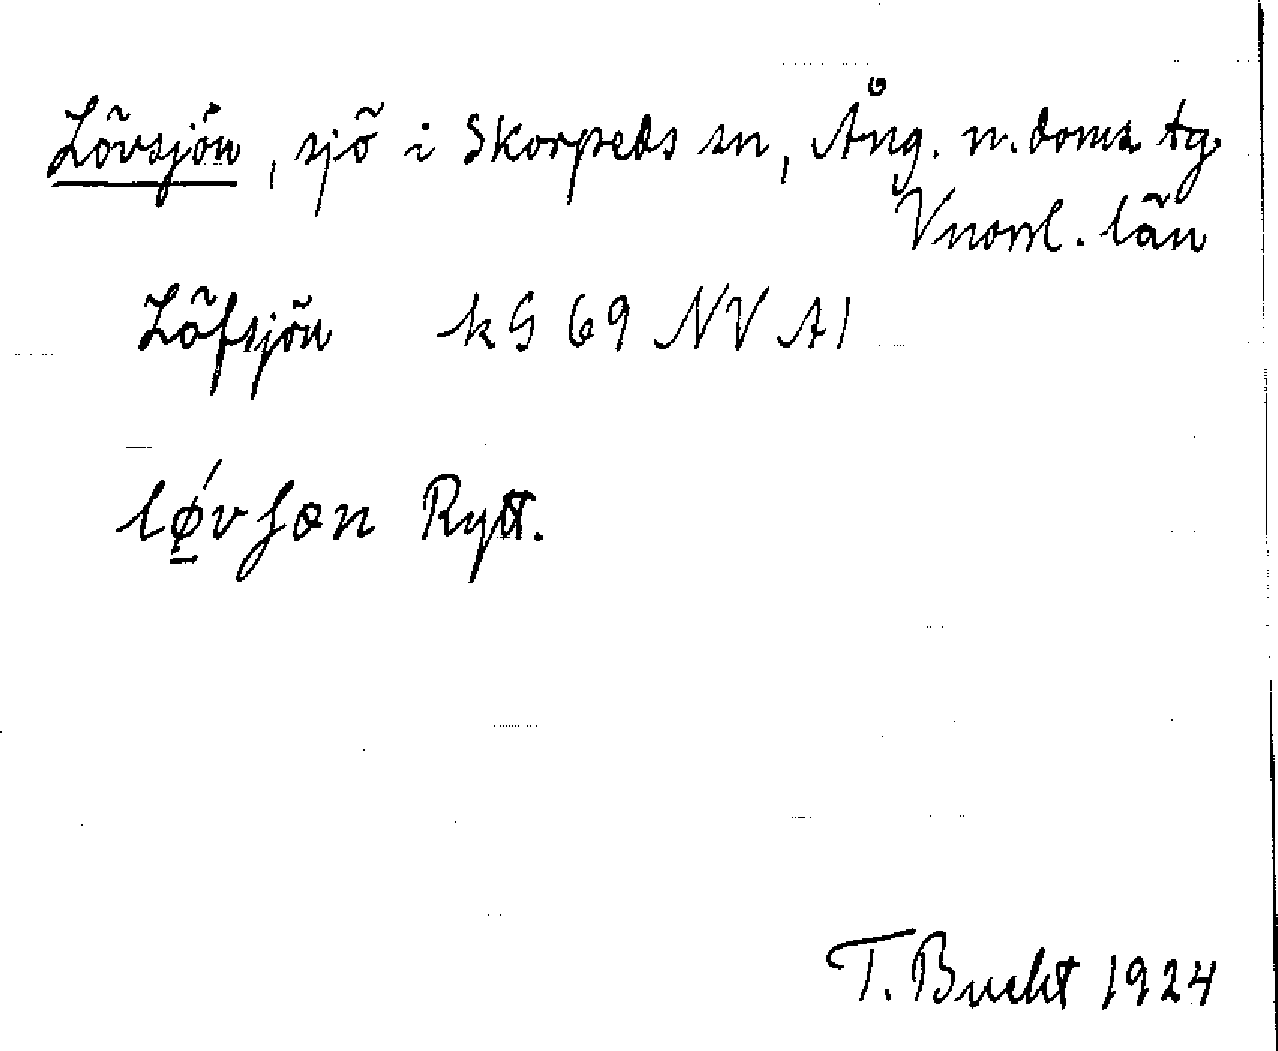 Lövsjön, sjö i Skorpeds sn, Ång. n. doms tg.
Vnorrl. län
Löfsjön kG 69 NV A1
lǿ̠vʃœn Rytt.
T. Bucht 1924